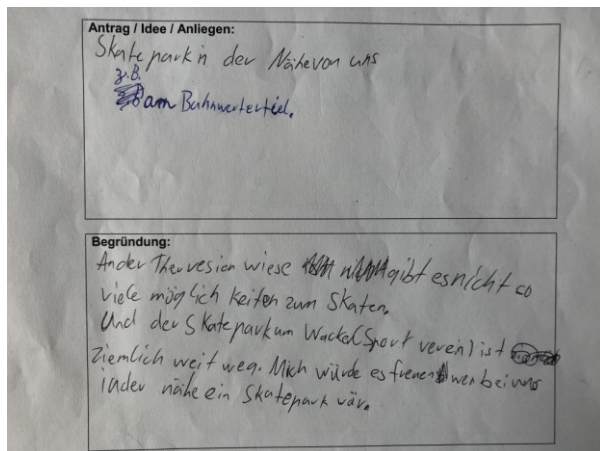 Antrag / Idee / Anliegen:
Skatepark in der Nähe von uns
z.B.
am Bahnwertertiel.
Begründung:
An der Thervesien wiese gibt es nicht so
viele möglich keiten zum Skaten.
Und der Skatepark um Wackel(Sport verein) ist
ziemlich weit weg. Mich würde es freuen wen bei uns
in der nähe ein Skatepark wär.